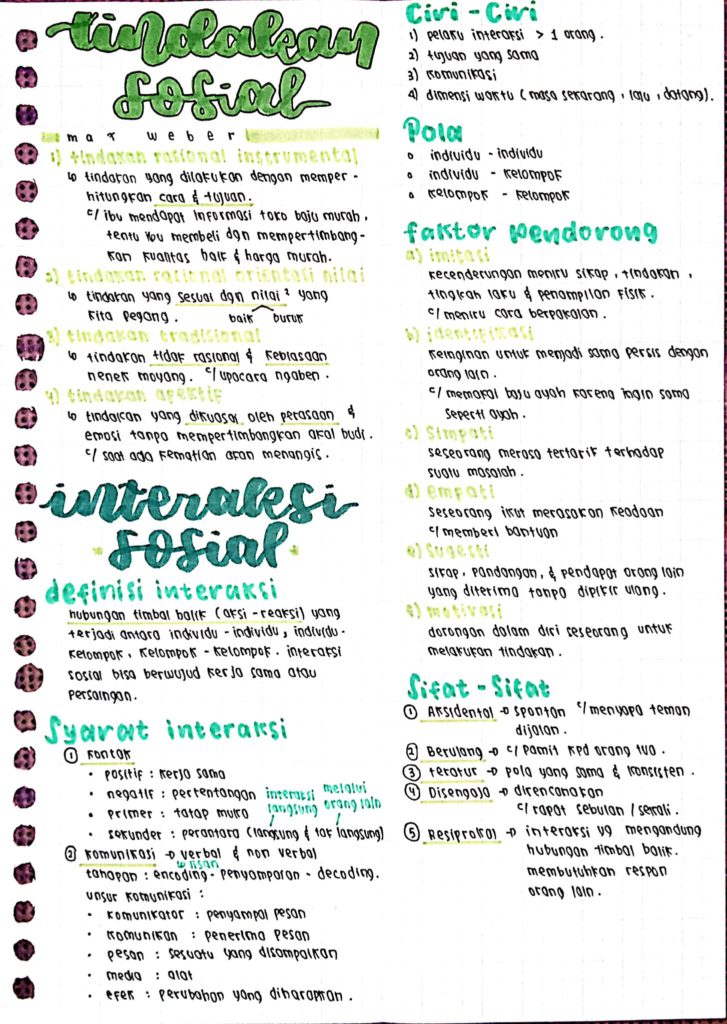 tindakan
sosial
max weber
1) tindakan rasional instrumental
↳ tindakan yang dilakukan dengan memper-
hitungkan cara & tujuan.
c/ ibu mendapat informasi toko baju murah,
tentu ibu membeli dgn mempertimbang-
kan kualitas baik & harga murah.
2) tindakan rasional orientasi nilai
↳ tindakan yang sesuai dgn nilai² yang
kita pegang. baik buruk
3) tindakan tradisional
↳ tindakan tidak rasional & kebiasaan
nenek moyang. c/ upacara ngaben.
4) tindakan afektif
↳ tindakan yang dikuasai oleh perasaan &
emosi tanpa mempertimbangkan akal budi.
c/ saat ada kematian akan menangis.
interaksi
sosial
definisi interaksi
hubungan timbal balik (aksi-reaksi) yang
terjadi antara individu-individu, individu-
kelompok, kelompok-kelompok. interaksi
sosial bisa berwujud kerja sama atau
persaingan.
Syarat interaksi
① kontak
• positif : kerja sama
• negatif : pertentangan
• primer : tatap muka
interaksi langsung
melalui orang lain
• sekunder : perantara (langsung & tak langsung)
② komunikasi → verbal & non verbal
↳ lisan
tahapan : encoding - penyampaian - decoding.
unsur komunikasi :
• komunikator : penyampai pesan
• komunikan : penerima pesan
• pesan : sesuatu yang disampaikan
• media : alat
• efek : perubahan yang diharapkan.
Ciri - Ciri
1) pelaku interaksi > 1 orang.
2) tujuan yang sama
3) komunikasi
4) dimensi waktu (masa sekarang, lalu, datang).
Pola
• individu - individu
• individu - kelompok
• kelompok - kelompok
faktor pendorong
a) imitasi
kecenderungan meniru sikap, tindakan,
tingkah laku & penampilan fisik.
c/ meniru cara berpakaian.
b) identifikasi
keinginan untuk menjadi sama persis dengan
orang lain.
c/ memakai baju ayah karena ingin sama
seperti ayah.
c) Simpati
seseorang merasa tertarik terhadap
suatu masalah.
d) empati
seseorang ikut merasakan keadaan
c/ memberi bantuan
e) Sugesti
sikap, pandangan, & pendapat orang lain
yang diterima tanpa dipikir ulang.
f) motivasi
dorongan dalam diri seseorang untuk
melakukan tindakan.
Sifat - Sifat
① Aksidental → spontan c/ menyapa teman
dijalan.
② Berulang → c/ pamit kpd orang tua.
③ teratur → pola yang sama & konsisten.
④ Disengaja → direncanakan
c/ rapat sebulan / sekali.
⑤ Resiprokal → interaksi yg mengandung
hubungan timbal balik.
membutuhkan respon
orang lain.